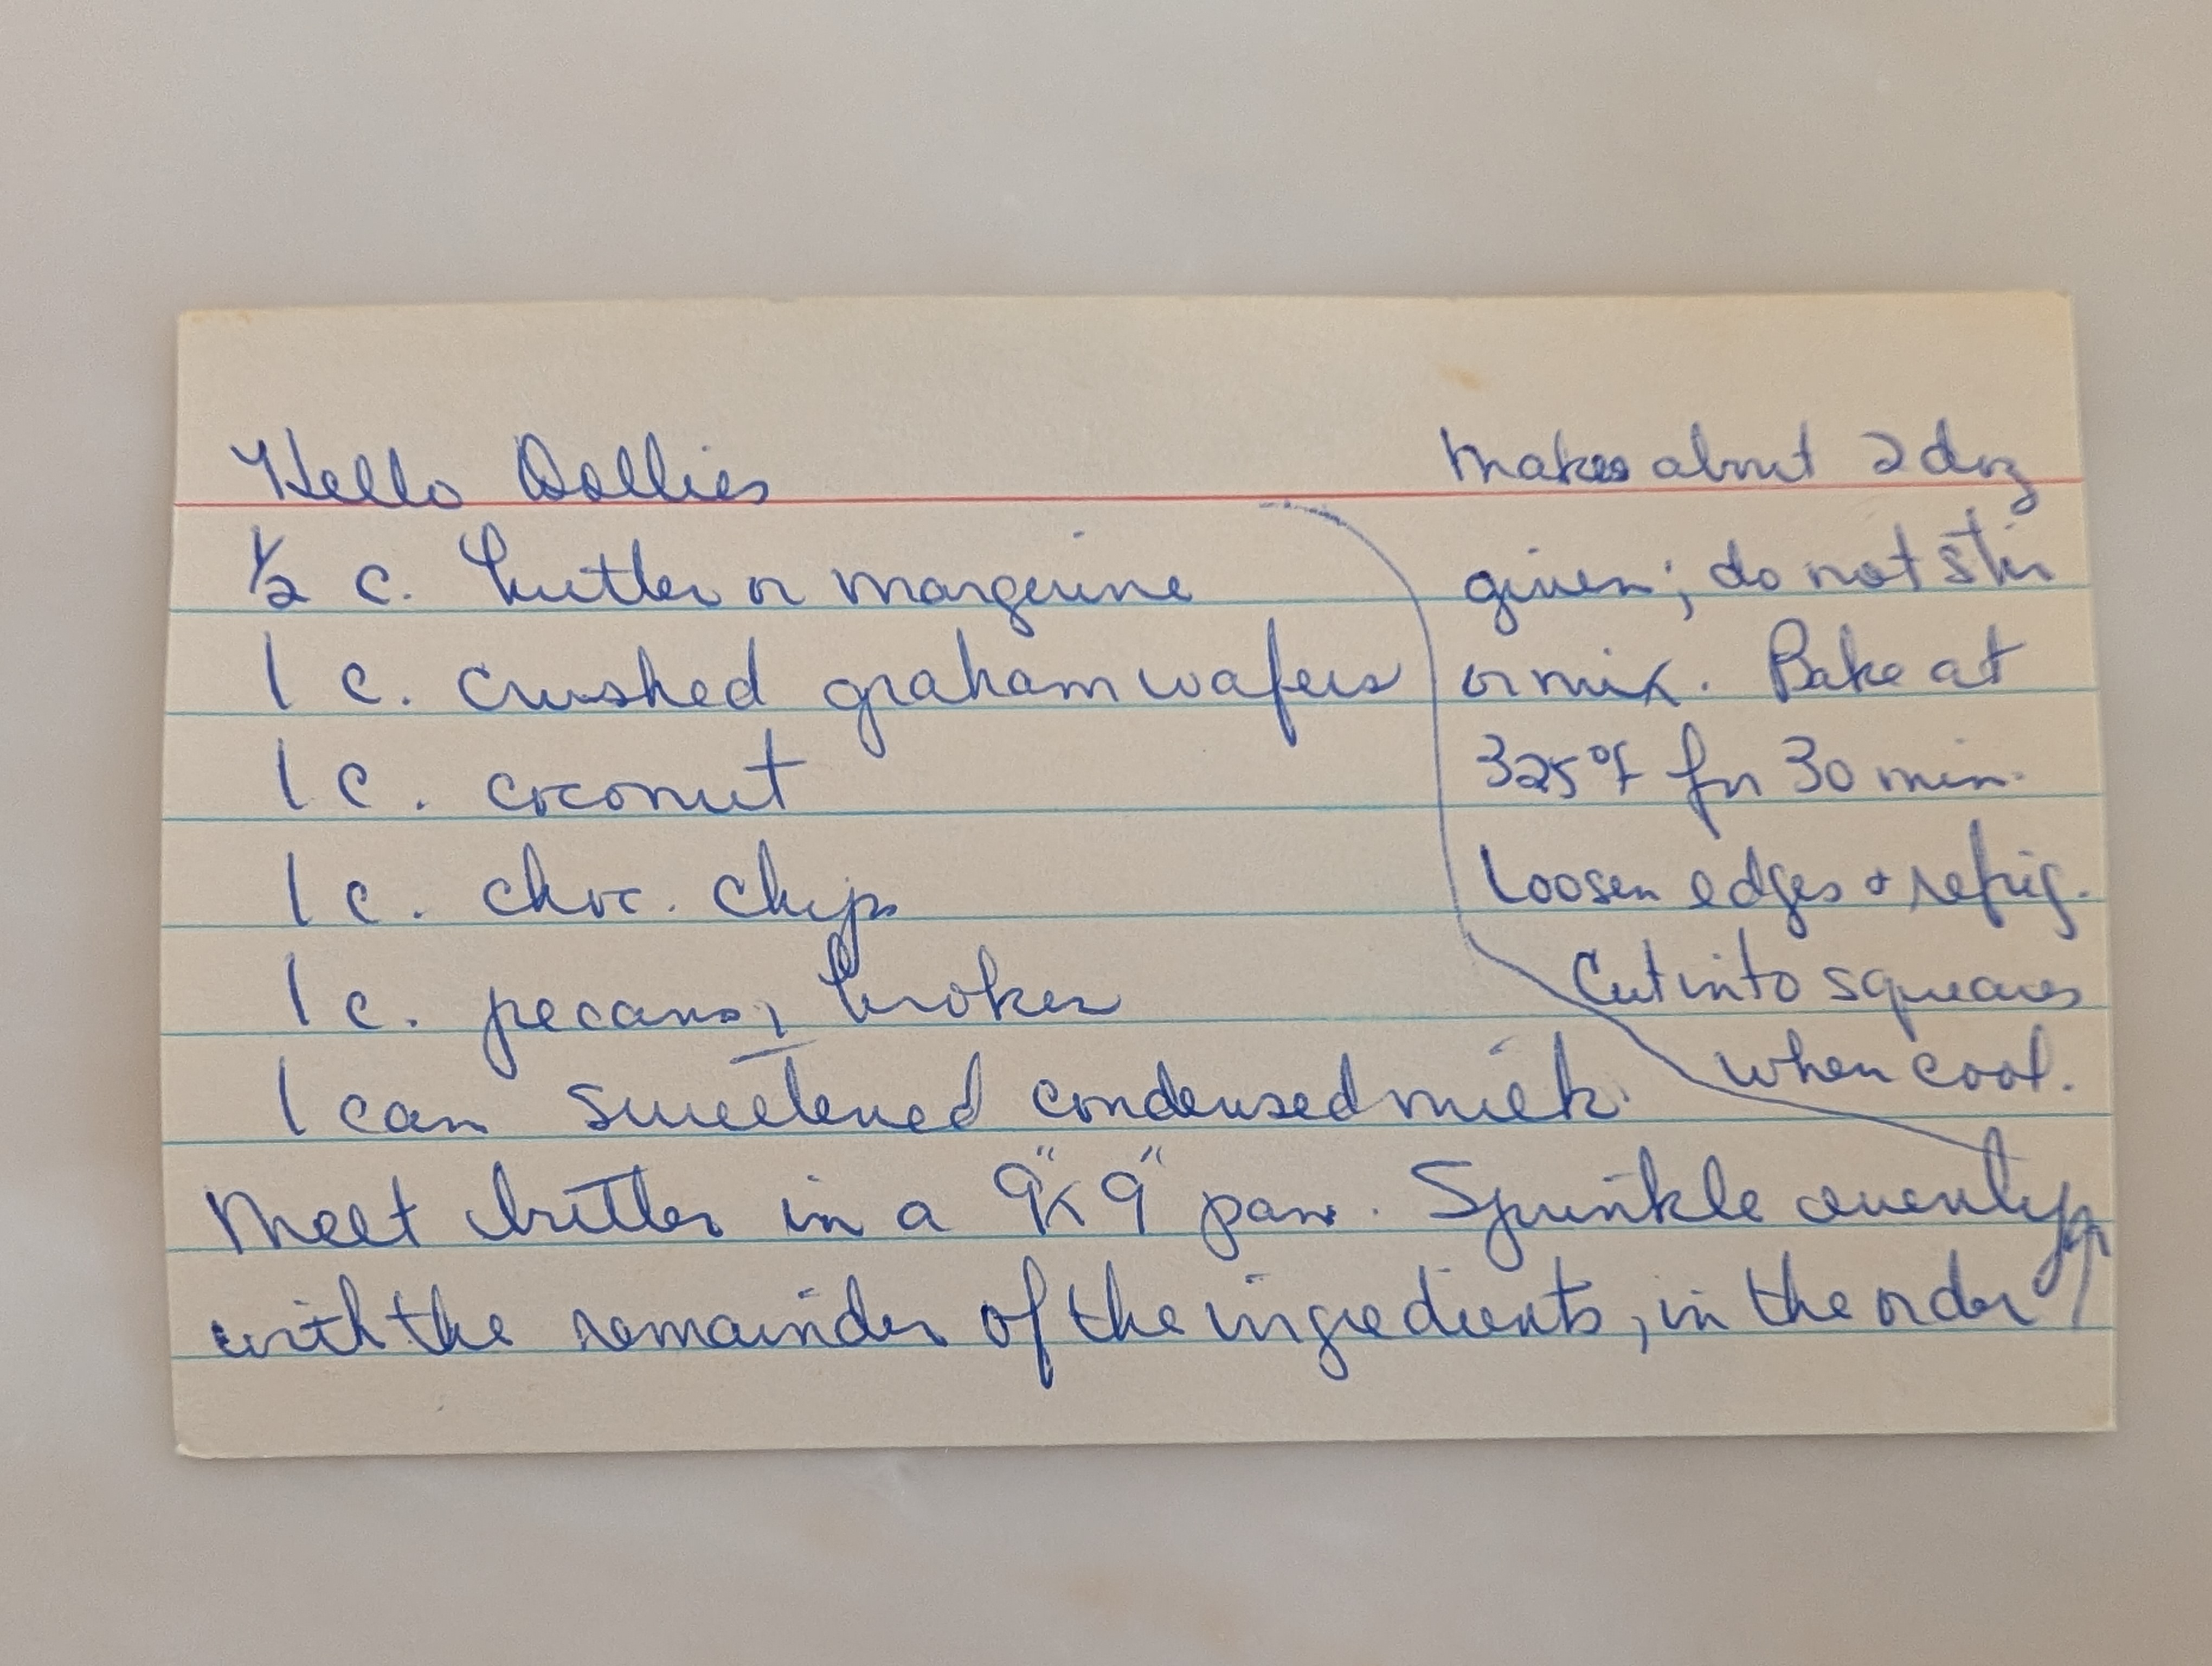 Hello Dollies
makes about 2 doz
1/2 c. butter or margerine
1 c. crushed graham wafers
1 c. coconut
1 c. choc. chips
1 c. pecans, broken
1 can sweetened condensed milk.
Melt butter in a 9"x9" pan. Sprinkle evenly
with the remainder of the ingredients, in the order
given; do not stir
or mix. Bake at
325°F for 30 min.
Loosen edges + refrig.
Cut into squares
when cool.